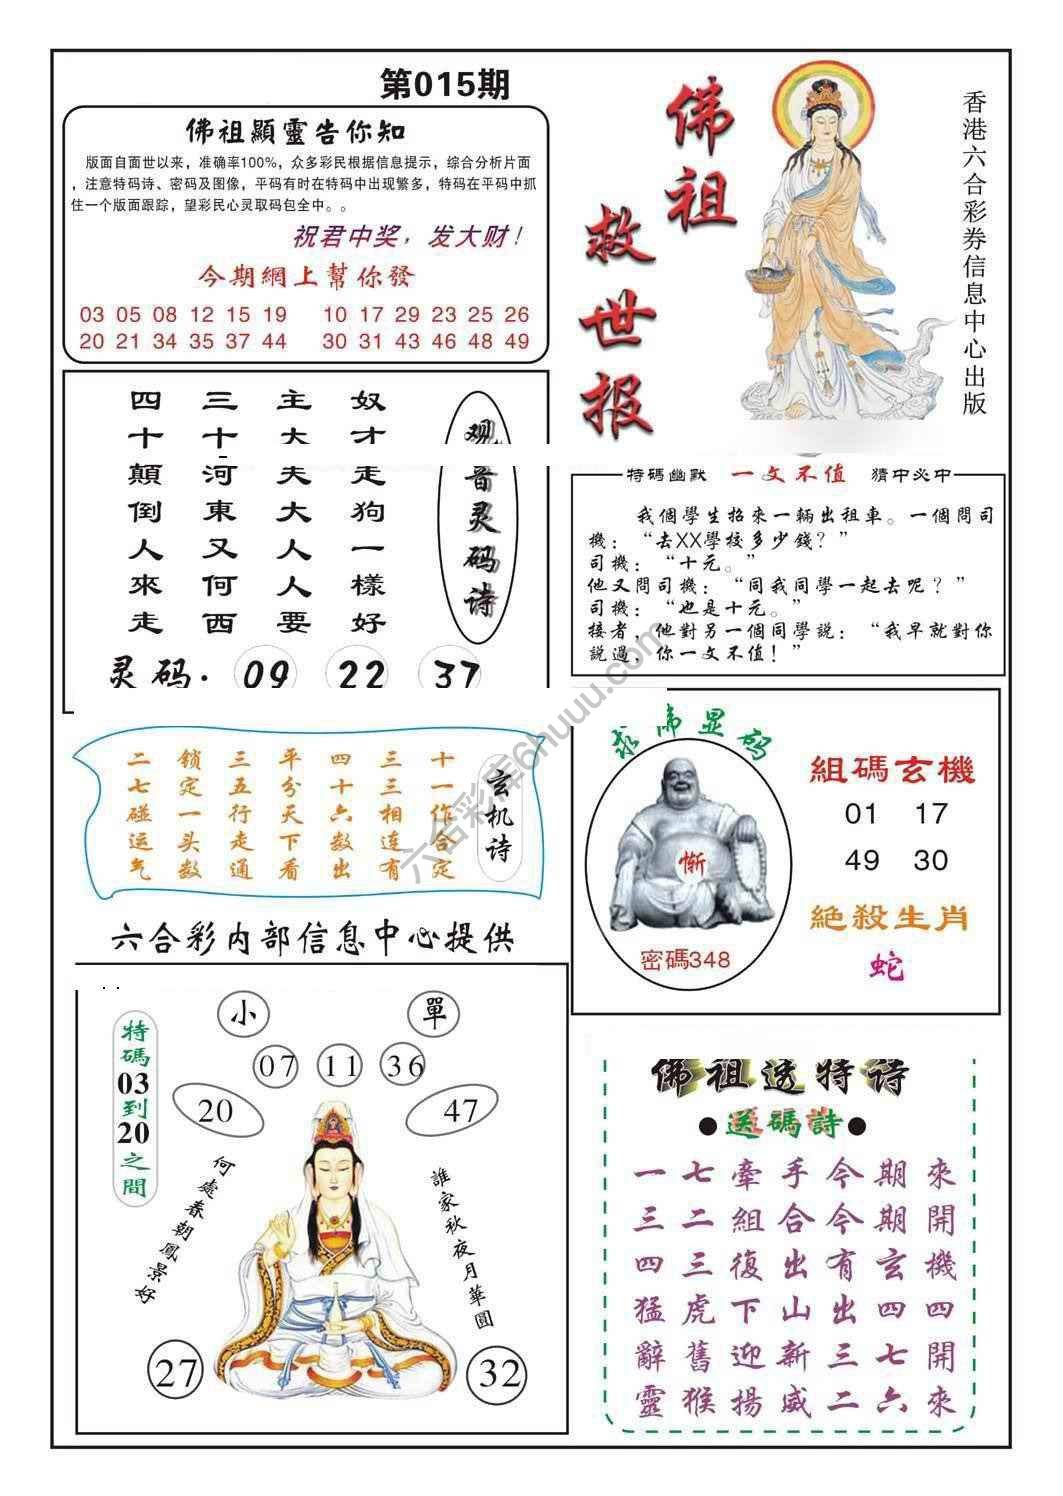 第015期
佛祖顯靈告你知
版面自面世以来，准确率100%，众多彩民根据信息提示，综合分析片面
，注意特码诗、密码及图像，平码有时在特码中出现繁多，特码在平码中抓
住一个版面跟踪，望彩民心灵取码包全中。。
祝君中奖，发大财！
今期網上幫你發
03 05 08 12 15 19 10 17 29 23 25 26
20 21 34 35 37 44 30 31 43 46 48 49
佛祖
救世报
香港六合彩券信息中心出版
观音灵码诗
奴才走狗一樣好
主大夫大人人要
三十河東又何西
四十顛倒人來走
灵码. 09 22 37
特碼幽默 一文不值 猜中必中
我個學生招來一輛出租車。一個問司
機：“去XX學校多少錢？”
司機：“十元。”
他又問司機：“同我同學一起去呢？”
司機：“也是十元。”
接者，他對另一個同學説：“我早就對你
説過，你一文不值！”
玄机诗
十一作合定
三三相连有
四十六数出
平分天下看
三五行走通
锁定一头数
二七碰运气
六合彩内部信息中心提供
显码
惭
密碼348
組碼玄機
01 17
49 30
絕殺生肖
蛇
小 單
特碼03到20之間
07 11 36
20 47
何處春朝鳳景好
誰家秋夜月華圓
27 32
佛祖透特诗
●送碼詩●
一七牽手今期來
三二組合今期開
四三復出有玄機
猛虎下山出四四
辭舊迎新三七開
靈猴揚威二六來
六合彩库6huuu.com